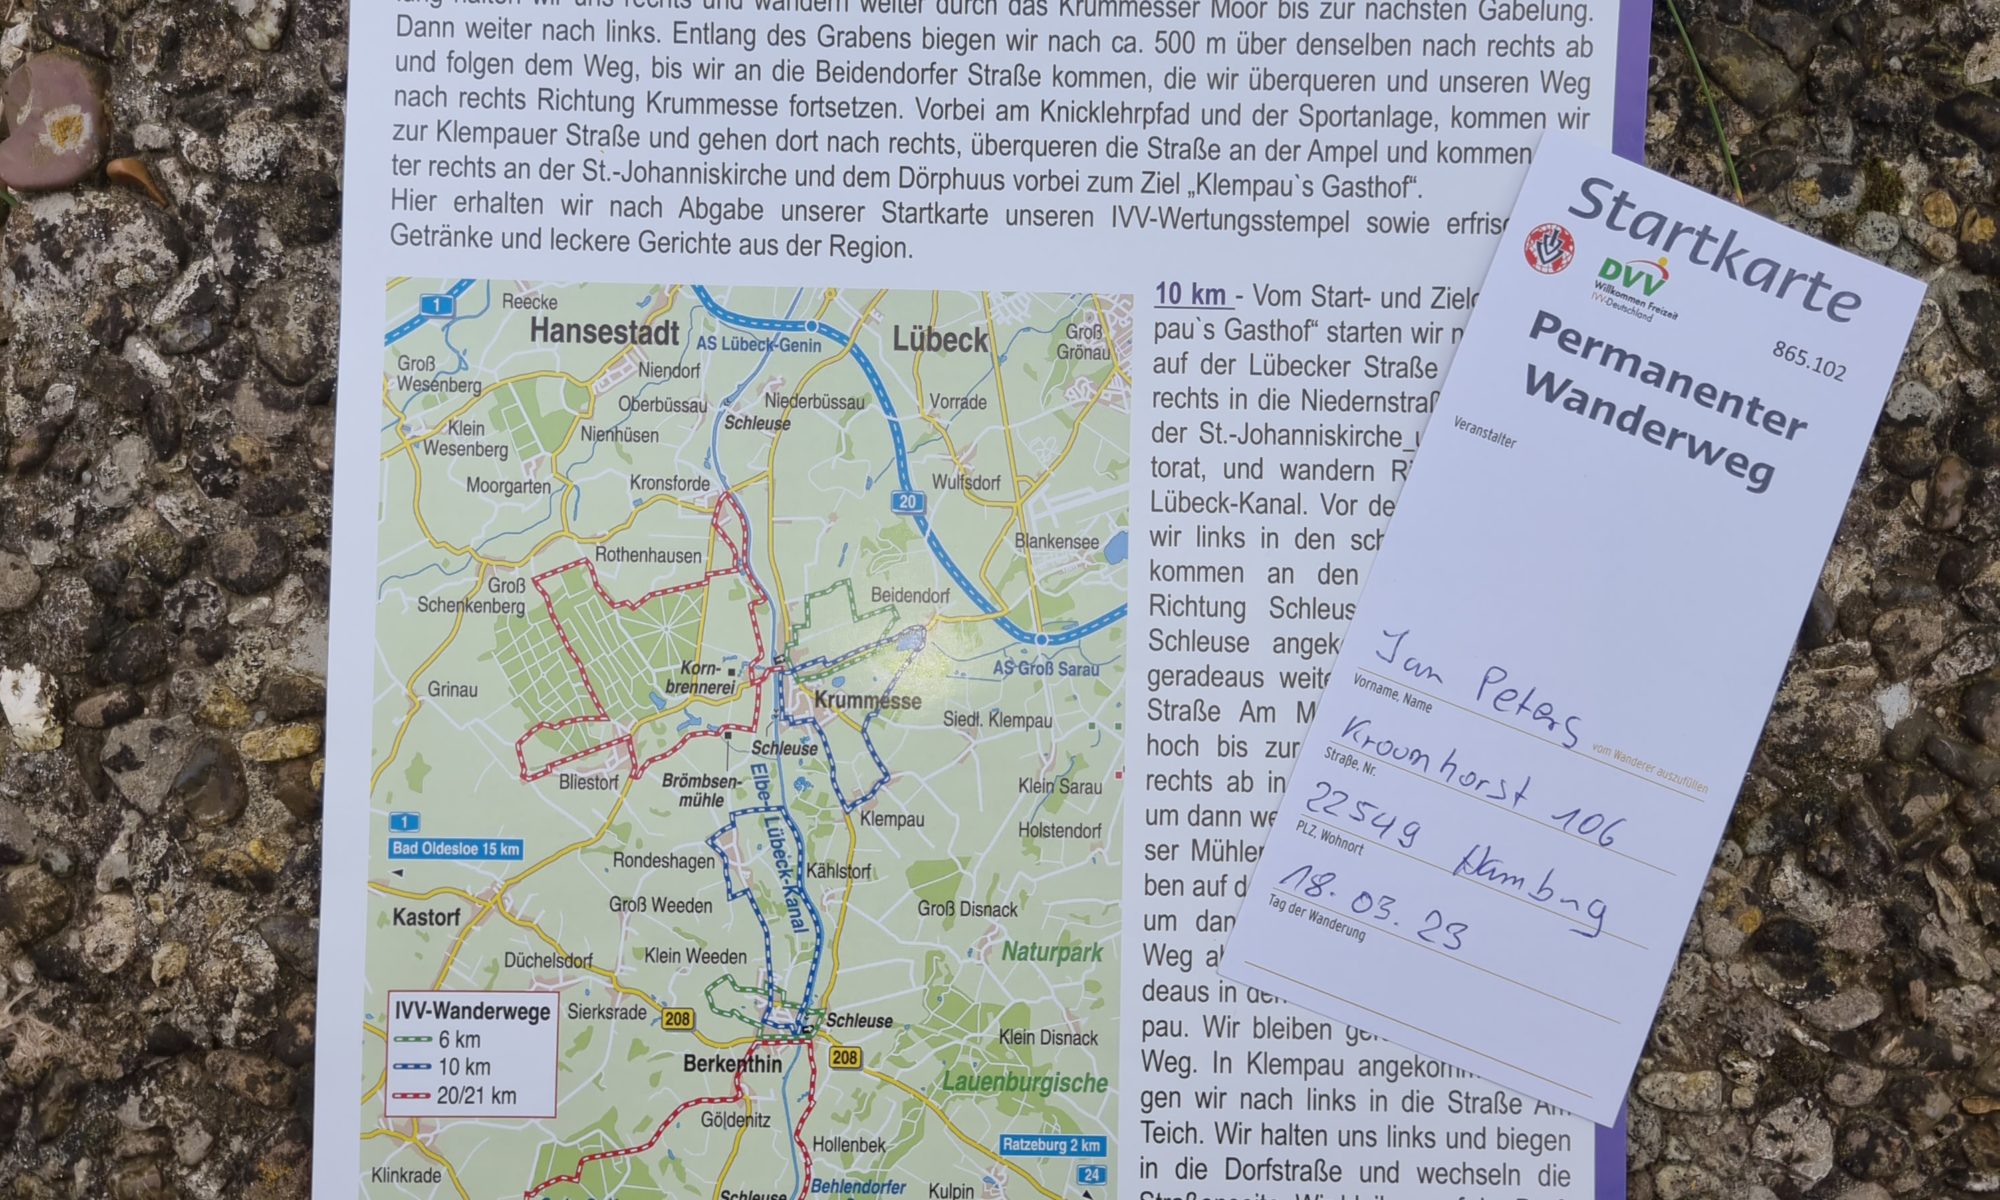 halten wir uns rechts und wandern weiter durch das Krummesser Moor bis zur nächsten Gabelung.
Dann weiter nach links. Entlang des Grabens biegen wir nach ca. 500 m über denselben nach rechts ab
und folgen dem Weg, bis wir an die Beidendorfer Straße kommen, die wir überqueren und unseren Weg
nach rechts Richtung Krummesse fortsetzen. Vorbei am Knicklehrpfad und der Sportanlage, kommen wir
zur Klempauer Straße und gehen dort nach rechts, überqueren die Straße an der Ampel und kommen
ter rechts an der St.-Johanniskirche und dem Dörphuus vorbei zum Ziel „Klempau`s Gasthof“.
Hier erhalten wir nach Abgabe unserer Startkarte unseren IVV-Wertungsstempel sowie
Getränke und leckere Gerichte aus der Region.
1
Reecke
Hansestadt
Lübeck
AS Lübeck-Genin
Groß
Grönau
Groß
Wesenberg
Niendorf
Oberbüssau
Niederbüssau
Vorrade
Schleuse
Klein
Wesenberg
Nienhüsen
Moorgarten
Kronsforde
Wulfsdorf
20
Rothenhausen
Blankensee
Groß
Schenkenberg
Beidendorf
AS Groß Sarau
Korn-
brennerei
Grinau
Krummesse
Siedl. Klempau
Schleuse
Bliestorf
Brömbsen-
mühle
Klein Sarau
Elbe-Lübeck-Kanal
Klempau
Holstendorf
1
Bad Oldesloe 15 km
Rondeshagen
Kählstorf
Kastorf
Groß Weeden
Groß Disnack
Naturpark
Düchelsdorf
Klein Weeden
IVV-Wanderwege
6 km
10 km
20/21 km
Sierksrade
208
Schleuse
Klein Disnack
Berkenthin
208
Lauenburgische
Göldenitz
Hollenbek
Ratzeburg 2 km
24
Klinkrade
Schleuse
Behlendorfer
Kulpin
10 km - Vom Start- und
pau`s Gasthof“ starten wir
auf der Lübecker Straße
rechts in die
der St.-Johanniskirche
torat, und wandern
Lübeck-Kanal. Vor
wir links in den
kommen an den
Richtung
Schleuse
geradeaus
Straße Am
hoch bis zur
rechts ab in
um dann
ser
ben auf
um
Weg
deaus in
pau. Wir bleiben
Weg. In Klempau
gen wir nach links in die Straße Am
Teich. Wir halten uns links und biegen
in die Dorfstraße und wechseln die
Startkarte
DVV
Willkommen Freizeit
IVV-Deutschland
865.102
Permanenter
Wanderweg
Veranstalter
Jan Peters
Vorname, Name
vom Wanderer auszufüllen
Kroonhorst 106
Straße, Nr.
22549 Hamburg
PLZ, Wohnort
18.03.23
Tag der Wanderung